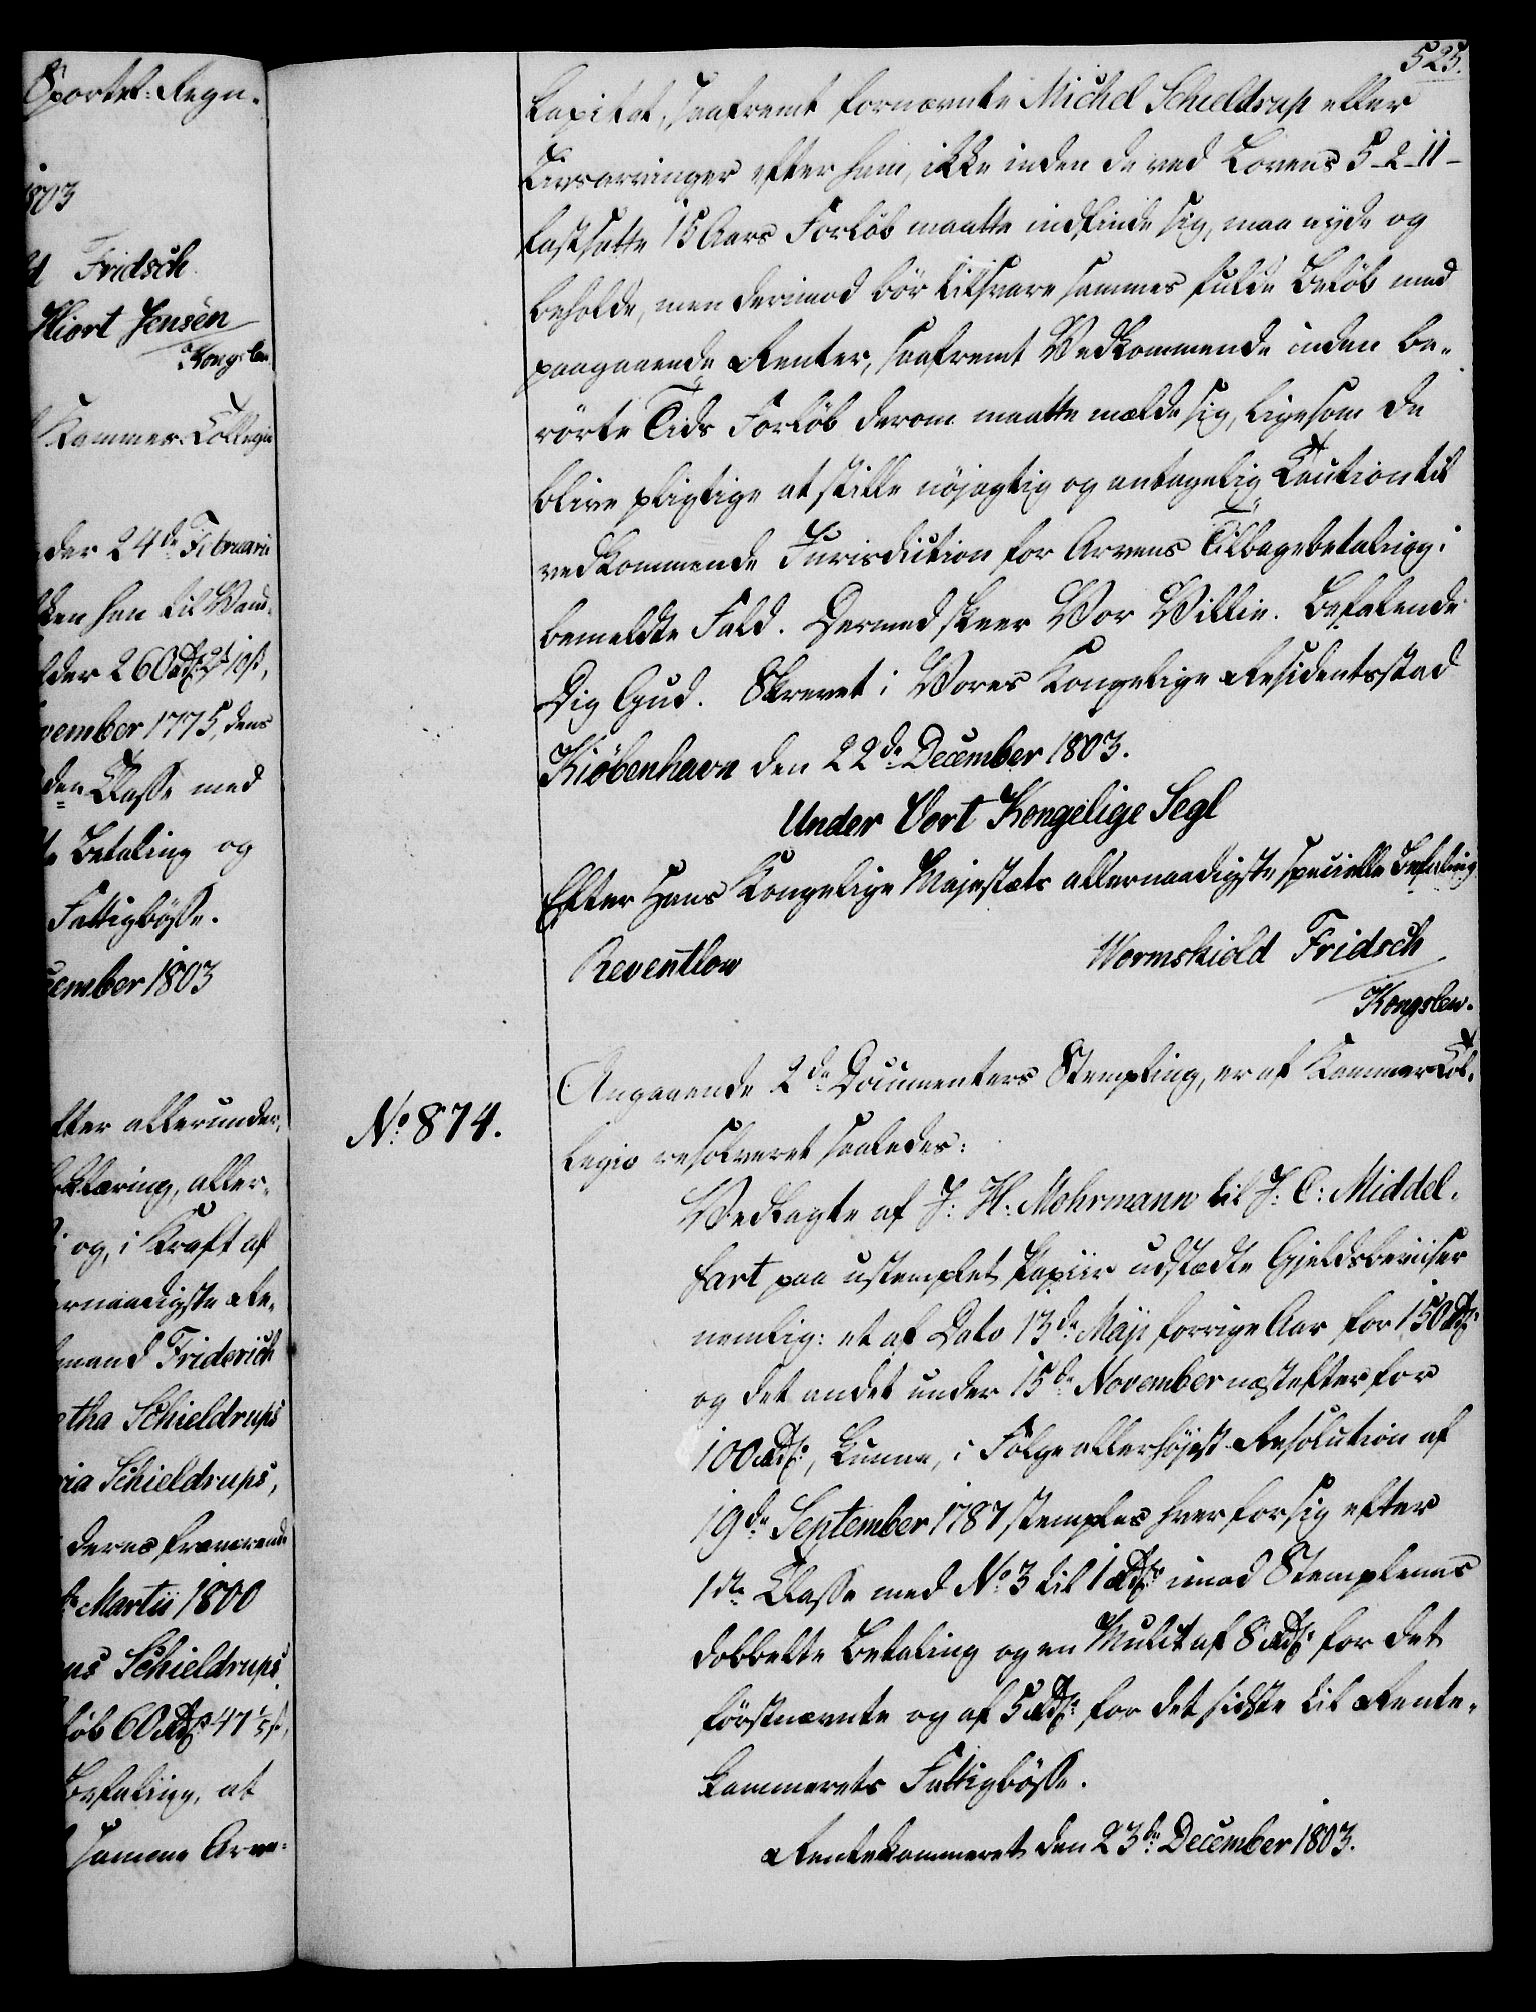 Sportel-Regn.
1803
Fridsch
Hiort Jensen
Kongslew
Kammer-Collegie
der 24de Februarii
hen til Vand-
der 260 Rdr 2 10 ß,
vember 1775, dens
den Classe med
Betaling og
Fattigbösse.
cember 1803
fter allerunder,
klæring, aller-
og, i Kraft af
ernaadigste Re-
mand Friderich
etha Schieldrups
ria Schieldrups,
deres fraværende
Martii 1800
ns Schieldrups
löb 60 Rdr 47 1/5 ß,
Befaling, at
samme Arve-
525.
Capital, saafremt fornævnte Michel Schieldrup eller
Livsarvinger efter ham, ikke inden de ved Lovens 5-2-11-
fastsatte 15 Aars Forløb maatte indfinde sig, maa nyde og
beholde, men derimod bör tilsvare sammes fulde Belöb med
paagaaende Renter, saafremt Vedkommende inden be-
rörte Tids Forlöb derom maatte melde sig, ligesom de
blive pligtige at stille nöjagtig og antagelig Caution til
vedkommende Jurisdiction for Arvens Tilbagebetaling i
bemeldte Fald. Dermed skeer Vor Villie. Befalende
Dig Gud. Skrevet i Vores Kongelige Residentsstad
Kiöbenhavn den 22de December 1803.
Under Vort Kongelige Segl
Efter Hans Kongelige Majestæts allernaadigste specielle Befaling
Reventlow Wormskiold Fridsch
Kongslew.
No 874.
Angaaende 2de Documenters Stempling, er af KammerCol-
legio resolveret saaledes:
Vedlagte af J: H: Mohrmann til J: C: Middel-
fart paa ustemplet Papiir udstædte Gjeldsbeviiser
nemlig: et af Dato 13de Maji forrige Aar for 150 Rdr
og det andet under 15de November næstefter for
100 Rdr, kunne, i Følge allerhöjst Resolution af
19de September 1787 stemples hver for sig efter
1ste Classe med No 3 til 1 Rdr imod Stemplenes
dobbelte Betaling og en Mulct af 8 Rdr for det
förstnævnte og af 5 Rdr for det sidste til Rente-
kammerets Fattigbösse.
Rentekammeret den 23de December 1803.